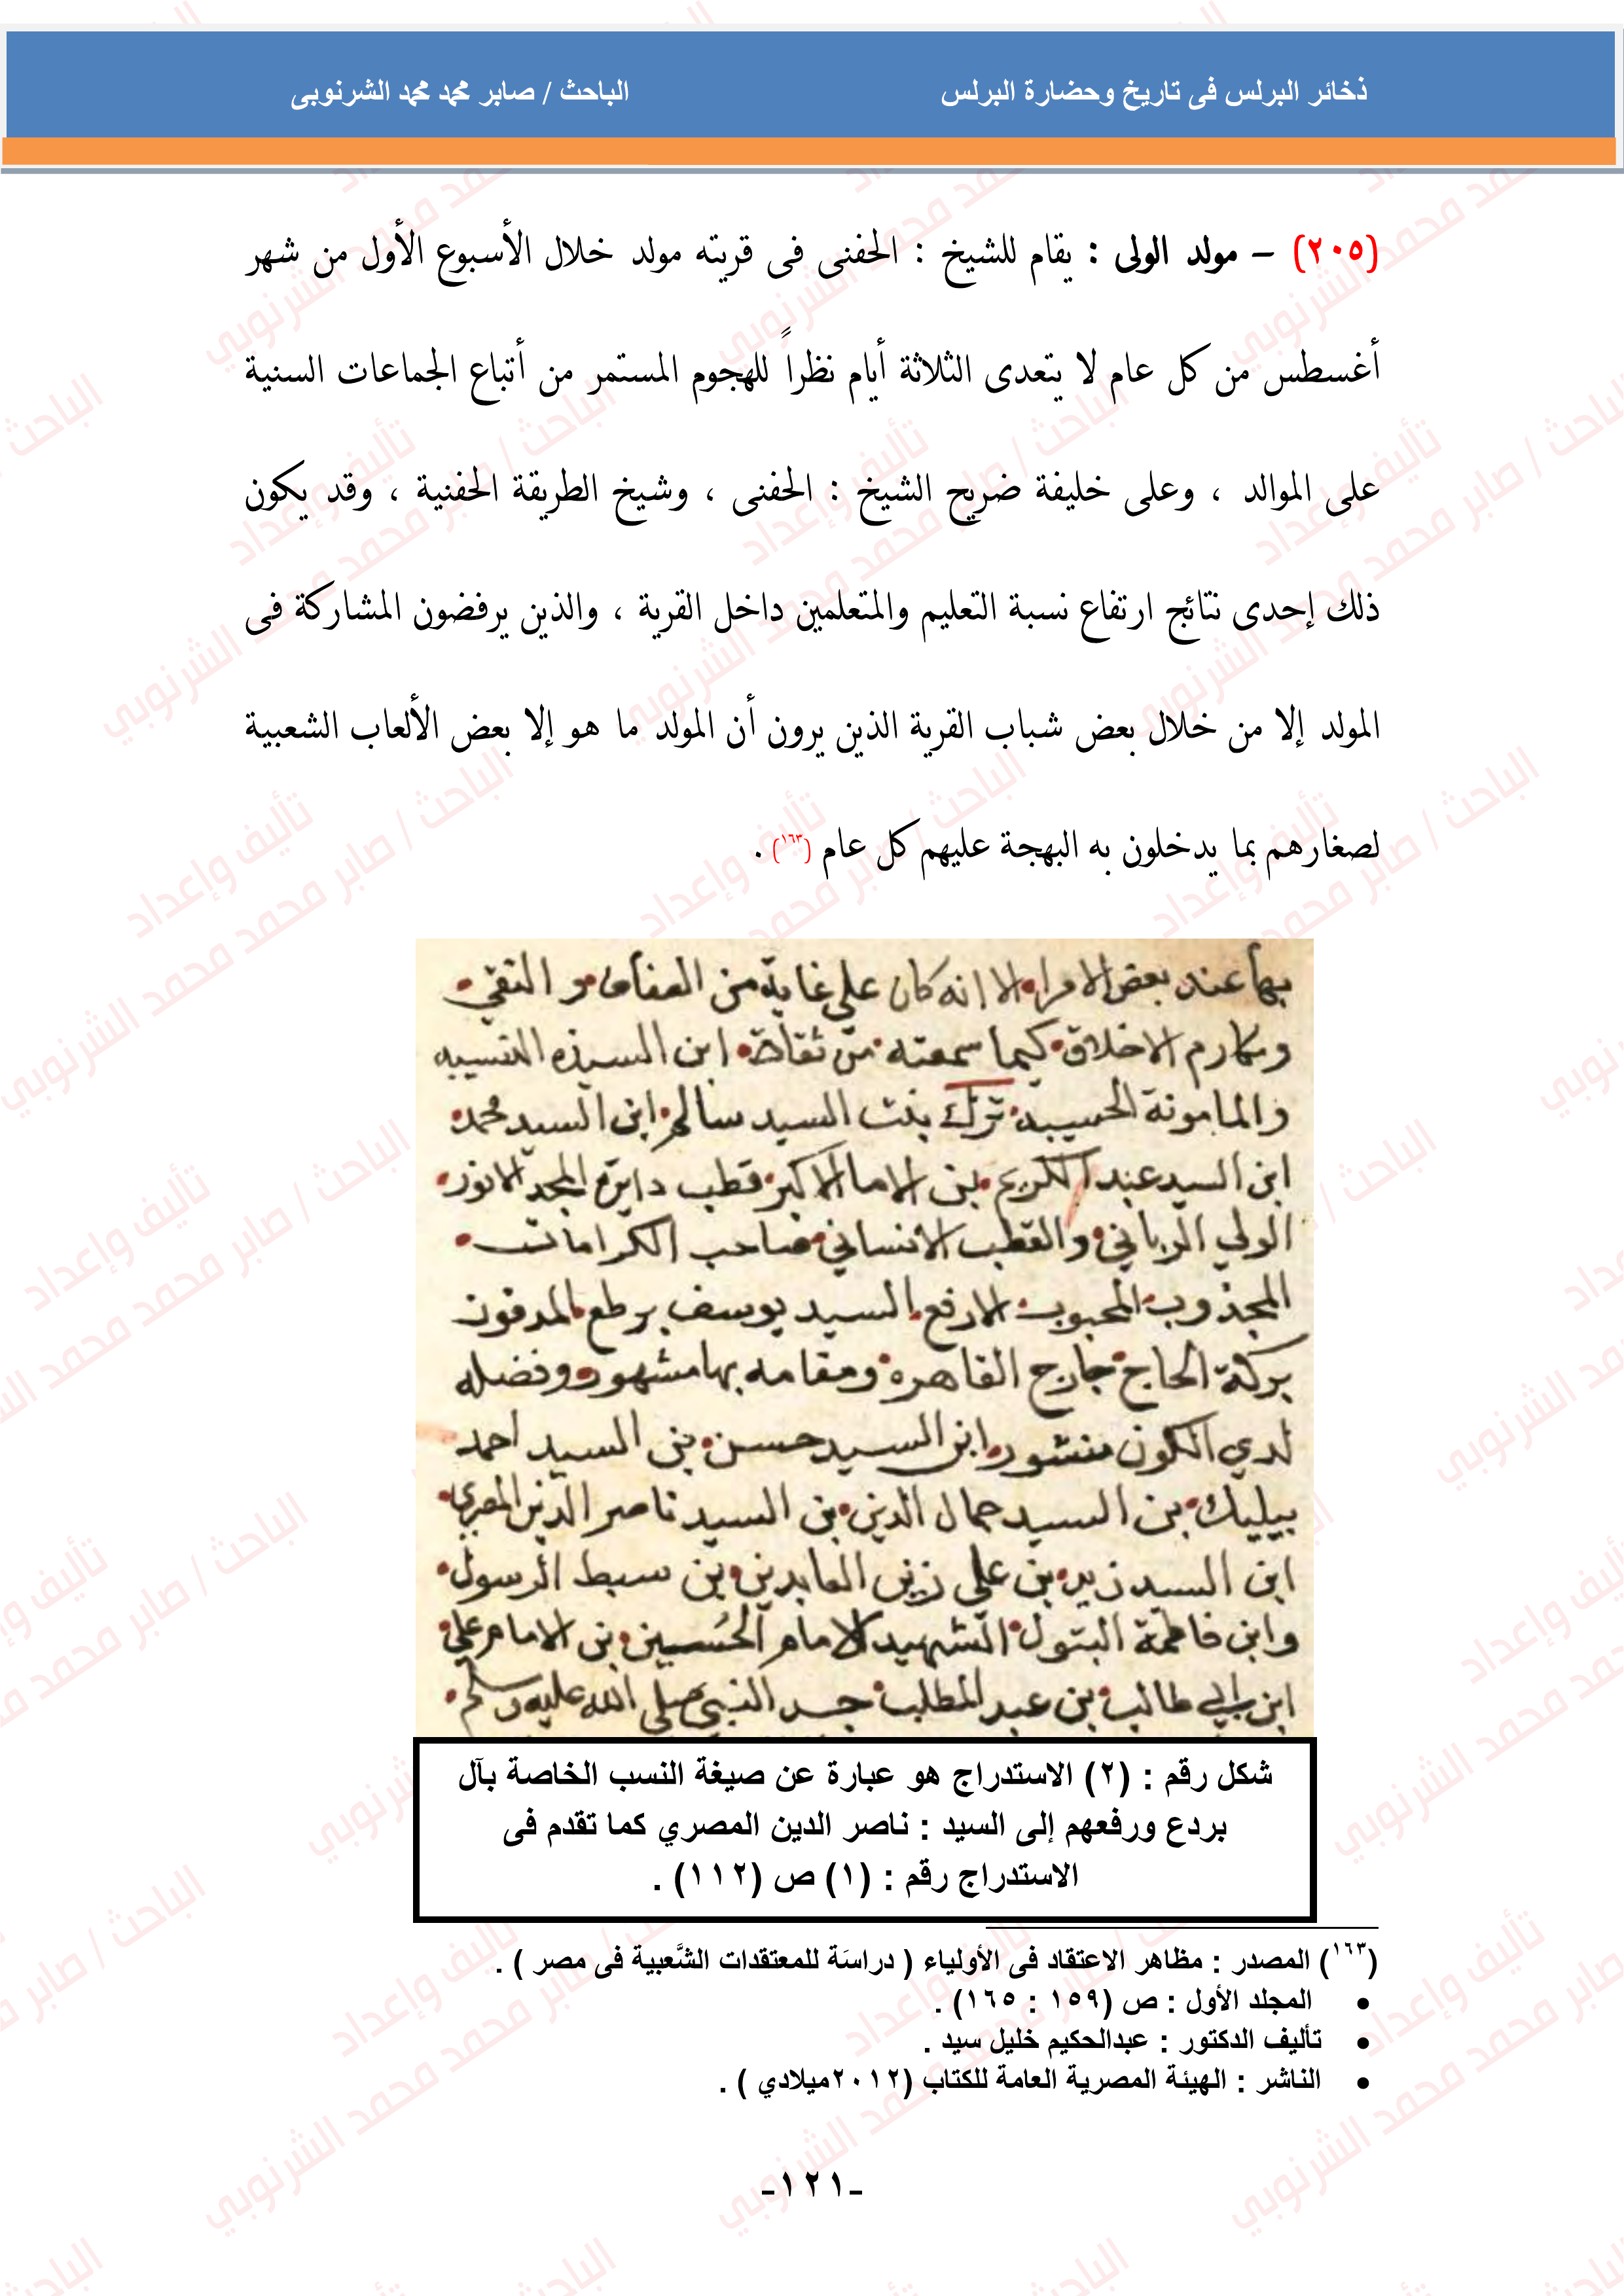 ذخائر البرلس فى تاريخ وحضارة البرلس
الباحث / صابر محمد محمد الشرنوبى
(٢٠٥) – مولد الولى : يقام للشيخ : الحفنى فى قريته مولد خلال الأسبوع الأول من شهر
أغسطس من كل عام لا يتعدى الثلاثة أيام نظراً للهجوم المستمر من أتباع الجماعات السنية
على الموالد ، وعلى خليفة ضريح الشيخ : الحفنى ، وشيخ الطريقة الحفنية ، وقد يكون
ذلك إحدى نتائج ارتفاع نسبة التعليم والمتعلمين داخل القرية ، والذين يرفضون المشاركة فى
المولد إلا من خلال بعض شباب القرية الذين يرون أن المولد ما هو إلا بعض الألعاب الشعبية
لصغارهم بما يدخلون به البهجة عليهم كل عام (١٦٣) .
بها عند بعض الامرا الا انه كان على غاية من العفاف و التقي
ومكارم الاخلاق كما سمعته من ثقاة ابن السيدة النسيبه
والمامونة الحسيبه ترك بنت السيد سالم ابن السيد محمد
ابن السيد عبد الكريم بن الامام الاكبر قطب دايرة المجد الانور
الولي الرباني والقطب الانساني صاحب الكرامات
المجذوب المحبوب الارفع السيد يوسف برطع المدفون
بركة الحاج خارج القاهرة ومقامه بها مشهور وفضله
لدي الكون منشور ابن السيد حسن بن السيد احمد
بيليك بن السيد جمال الدين بن السيد ناصر الدين المصري
ابن السيد زيد بن علي زين العابدين بن سبط الرسول
وابن فاطمة البتول الشهيد الامام الحسين بن الامام علي
ابن ابي طالب بن عبد المطلب جد النبي صلى الله عليه وسلم
شكل رقم : (٢) الاستدراج هو عبارة عن صيغة النسب الخاصة بآل
بردع ورفعهم إلى السيد : ناصر الدين المصري كما تقدم فى
الاستدراج رقم : (١) ص (١١٢) .
(١٦٣) المصدر : مظاهر الاعتقاد فى الأولياء ( دراسَة للمعتقدات الشَّعبية فى مصر ) .
• المجلد الأول : ص (١٥٩ : ١٦٥) .
• تأليف الدكتور : عبدالحكيم خليل سيد .
• الناشر : الهيئة المصرية العامة للكتاب (٢٠١٢ميلادي ) .
-١٢١-
تأليف وإعداد
الباحث / صابر محمد محمد الشرنوبي